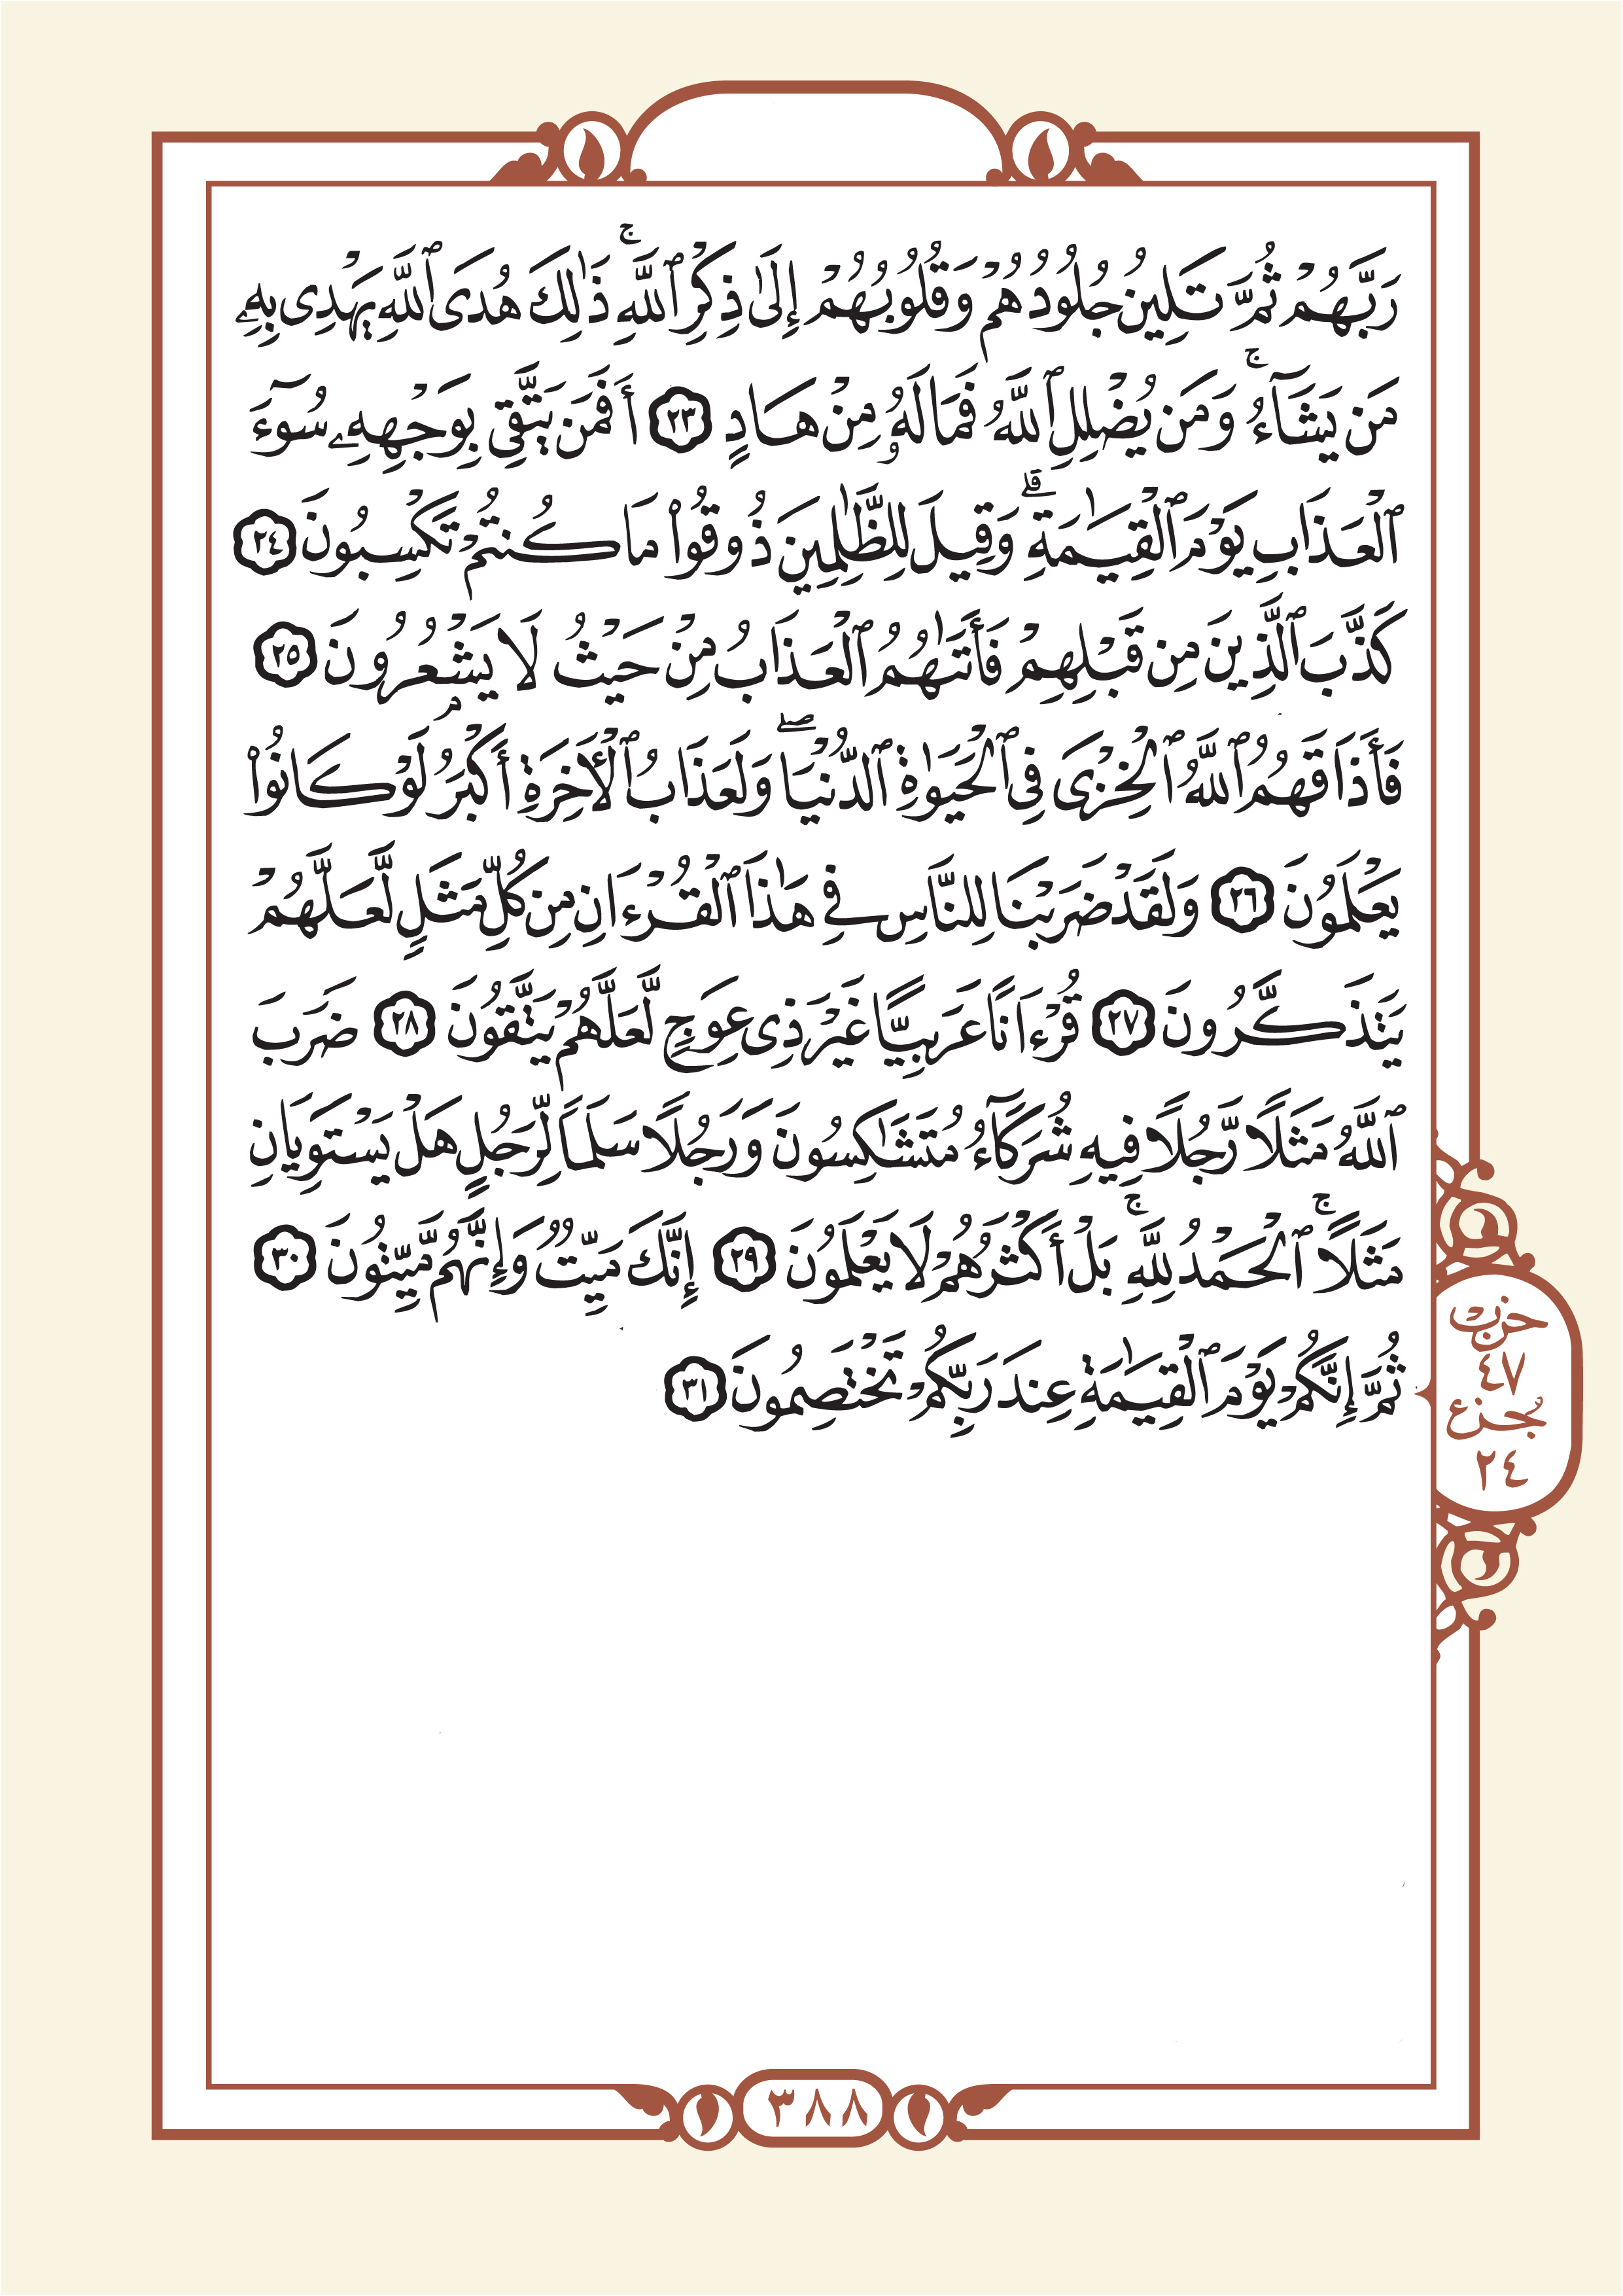 رَبَّهُمْ ثُمَّ تَلِينُ جُلُودُهُمْ وَقُلُوبُهُمْ إِلَىٰ ذِكْرِ ٱللَّهِۚ ذَٰلِكَ هُدَى ٱللَّهِ يَهْدِى بِهِۦ
مَن يَشَآءُۚ وَمَن يُضْلِلِ ٱللَّهُ فَمَا لَهُۥ مِنْ هَادٍ ٢٣ أَفَمَن يَتَّقِى بِوَجْهِهِۦ سُوٓءَ
ٱلْعَذَابِ يَوْمَ ٱلْقِيَـٰمَةِۗ وَقِيلَ لِلظَّـٰلِمِينَ ذُوقُوا۟ مَا كُنتُمْ تَكْسِبُونَ ٢٤
كَذَّبَ ٱلَّذِينَ مِن قَبْلِهِمْ فَأَتَىٰهُمُ ٱلْعَذَابُ مِنْ حَيْثُ لَا يَشْعُرُونَ ٢٥
فَأَذَاقَهُمُ ٱللَّهُ ٱلْخِزْىَ فِى ٱلْحَيَوٰةِ ٱلدُّنْيَاۖ وَلَعَذَابُ ٱلْأَخِرَةِ أَكْبَرُۘ لَوْ كَانُوا۟
يَعْلَمُونَ ٢٦ وَلَقَدْ ضَرَبْنَا لِلنَّاسِ فِى هَـٰذَا ٱلْقُرْءَانِ مِن كُلِّ مَثَلٍ لَّعَلَّهُمْ
يَتَذَكَّرُونَ ٢٧ قُرْءَانًا عَرَبِيًّا غَيْرَ ذِى عِوَجٍ لَّعَلَّهُمْ يَتَّقُونَ ٢٨ ضَرَبَ
ٱللَّهُ مَثَلًا رَّجُلًا فِيهِ شُرَكَآءُ مُتَشَـٰكِسُونَ وَرَجُلًا سَلَمًا لِّرَجُلٍ هَلْ يَسْتَوِيَانِ
مَثَلًاۚ ٱلْحَمْدُ لِلَّهِۚ بَلْ أَكْثَرُهُمْ لَا يَعْلَمُونَ ٢٩ إِنَّكَ مَيِّتٌ وَإِنَّهُم مَّيِّتُونَ ٣٠
ثُمَّ إِنَّكُمْ يَوْمَ ٱلْقِيَـٰمَةِ عِندَ رَبِّكُمْ تَخْتَصِمُونَ ٣١
حزب
٤٧
جزء
٢٤
٣٨٨